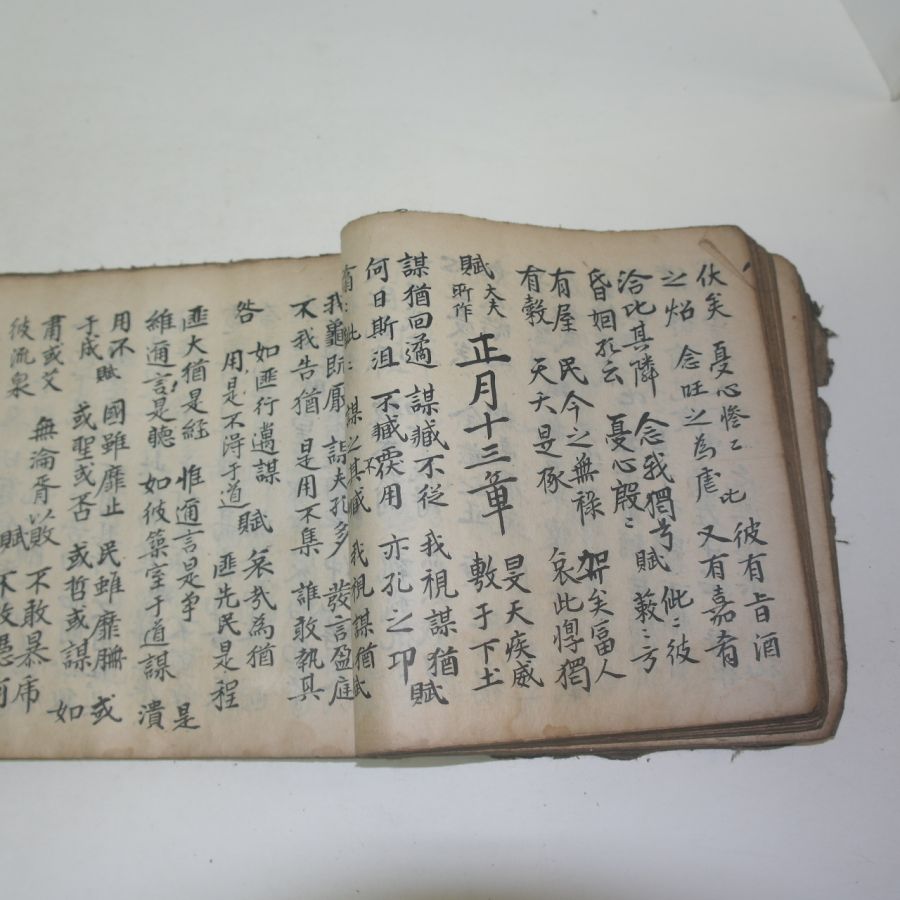 伏矣　憂心慘〻　比　彼有旨酒
之炤　念旺之為虐　又有嘉肴
洽比其隣　念我獨兮　賦　佌〻彼
昏姻孔云　憂心殷〻　蔌〻方
有屋　民今之無祿　哿矣富人
有穀　夭夭是椓　哀此惸獨
賦　大夫所作　正月十三章　旻天疾威
敷于下土
謀猶回遹　謀臧不從　我視謀猶　賦
何日斯沮　不臧覆用　亦孔之卭
謀之其臧　我視謀猶　賦
我龜既厭　謀夫孔多　發言盈庭
不我告猶　是用不集　誰敢執其
咎　如匪行邁謀　賦　哀哉為猶
用是不得于道　匪先民是程
匪大猶是經　惟邇言是爭　是
維邇言是聽　如彼築室于道謀　潰
用不　賦　國雖靡止　民雖靡膴　或
于成　或聖或否　或哲或謀　如
肅或艾　無淪胥以敗　不敢暴虎
彼流泉　賦